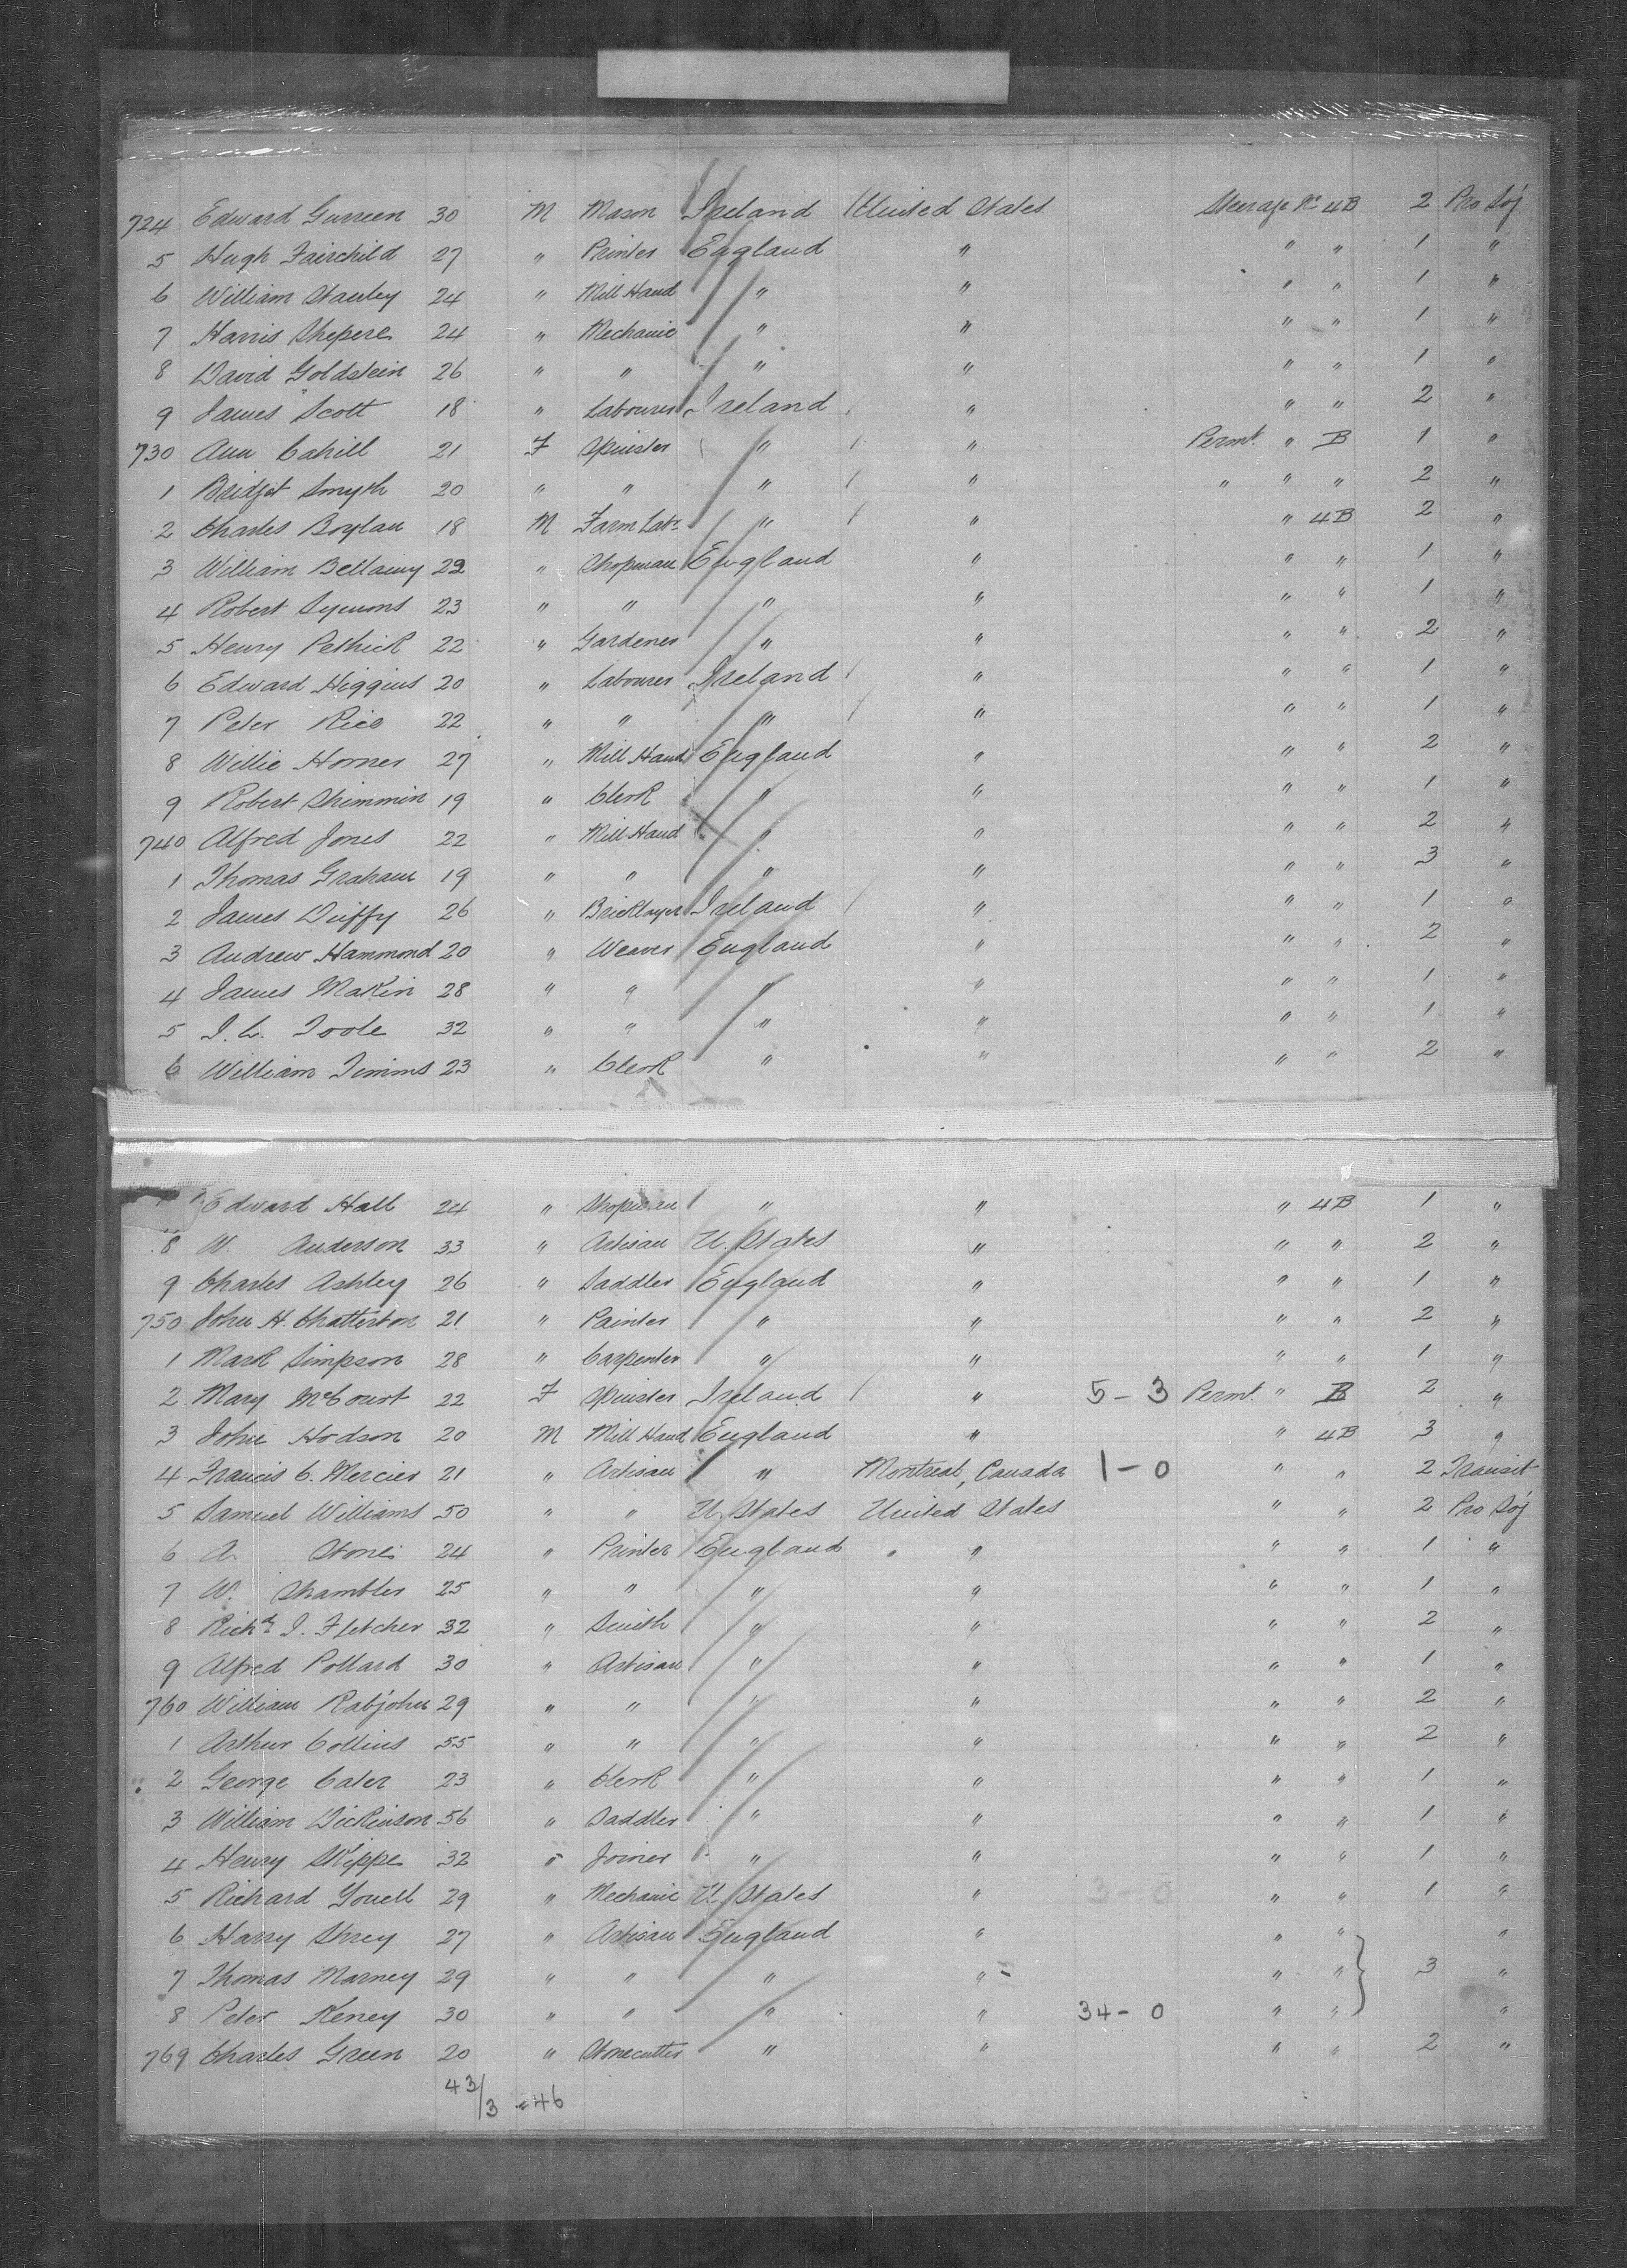 724 Edward Gurreen 30 M Mason Ireland United States Steerage No 4B 2 Pro Soj
5 Hugh Fairchild 27 " Printer England " " " 1 "
6 William Stanley 24 " Mill Hand " " " " 1 "
7 Harris Shepere 24 " Mechanic " " " " 1 "
8 David Goldstein 26 " " " " " " 1 "
9 James Scott 18 " Labourer Ireland " " " 2 "
730 Ann Cahill 21 F Spinster " " Permt. " B 1 "
1 Bridget Smyth 20 " " " " " " " 2 "
2 Charles Boylan 18 M Farm Labr " " " 4B 2 "
3 William Bellamy 22 " Shopman England " " " 1 "
4 Robert Symons 23 " " " " " " 1 "
5 Henry Pethick 22 " Gardener " " " " 2 "
6 Edward Higgins 20 " Labourer Ireland " " " 1 "
7 Peter Rice 22 " " " " " " 1 "
8 Willie Horner 27 " Mill Hand England " " " 2 "
9 Robert Shimmin 19 " Clerk " " " " 1 "
740 Alfred Jones 22 " Mill Hand " " " " 2 "
1 Thomas Graham 19 " " " " " " 3 "
2 James Duffy 26 " Bricklayer Ireland " " " 1 "
3 Andrew Hammond 20 " Weaver England " " " 2 "
4 James Makin 28 " " " " " " 1 "
5 J. L. Toole 32 " " " " " " 1 "
6 William Timms 23 " Clerk " " " " 2 "
Edward Hall 24 " Shopman " " " 4B 1 "
8 W. Anderson 33 " Artisan U. States " " " 2 "
9 Charles Ashley 26 " Saddler England " " " 1 "
750 John H. Chatterton 21 " Painter " " " " 2 "
1 Mark Simpson 28 " Carpenter " " " " 1 "
2 Mary McCourt 22 F Spinster Ireland " 5 - 3 Permt. " B 2 "
3 John Hodson 20 M Mill Hand England " " 4B 3 "
4 Francis C. Mercier 21 " Artisan " Montreal, Canada 1 - 0 " " 2 Transit
5 Samuel Williams 50 " " U. States United States " " 2 Pro Soj
6 A. Stone 24 " Printer England " " " 1 "
7 W. Shambler 25 " " " " " " 1 "
8 Richd J. Fletcher 32 " Smith " " " " 2 "
9 Alfred Pollard 30 " Artisan " " " " 1 "
760 William Rabjohn 29 " " " " " " 2 "
1 Arthur Collins 55 " " " " " " 2 "
2 George Cater 23 " Clerk " " " " 1 "
3 William Dickinson 56 " Saddler " " " " 1 "
4 Henry Skippe 32 " Joiner " " " " 1 "
5 Richard Youell 29 " Mechanic U. States " 3 - 0 " " 1 "
6 Harry Shrey 27 " Artisan England " " " "
7 Thomas Marney 29 " " " " - " " 3 "
8 Peter Keney 30 " " " " 34 - 0 " " "
769 Charles Green 20 " Stonecutter " " " " 2 "
43/3 = 46